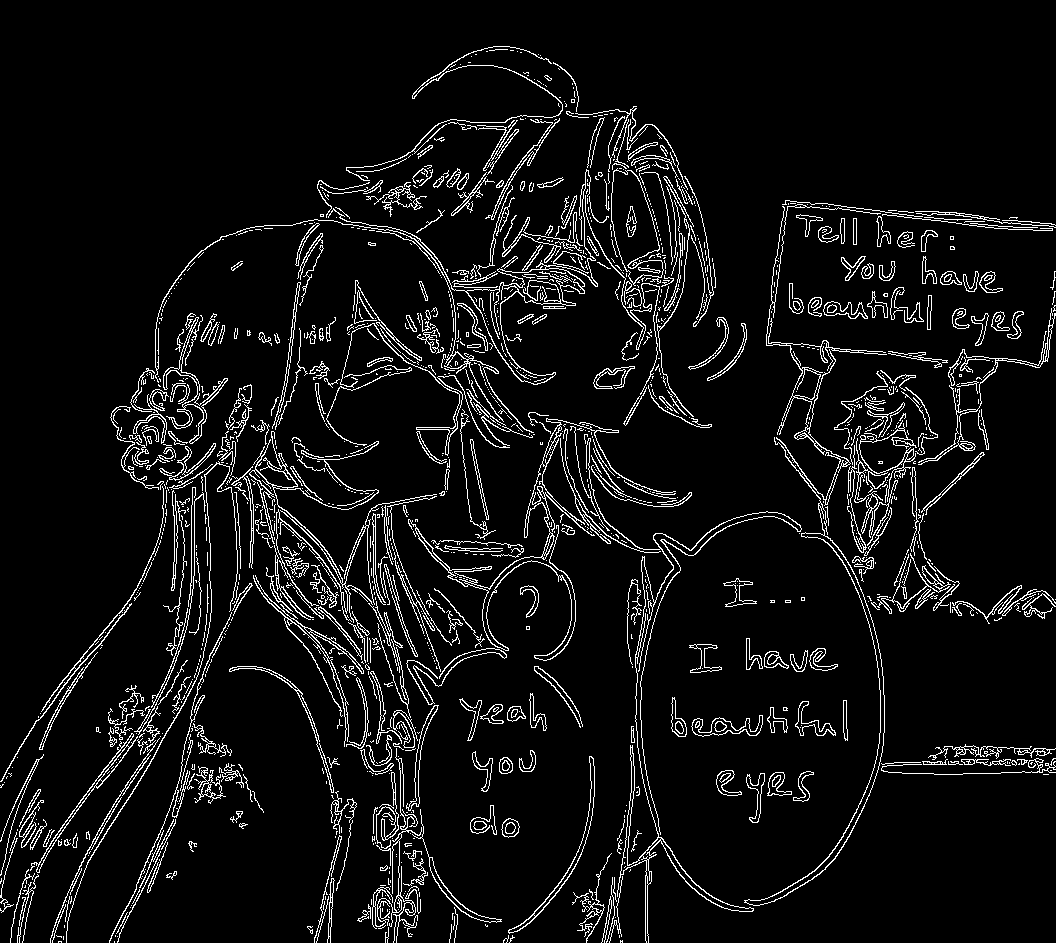 Tell her:
You have
beautiful eyes
I...
I have
beautiful
eyes
?
yeah
you
do